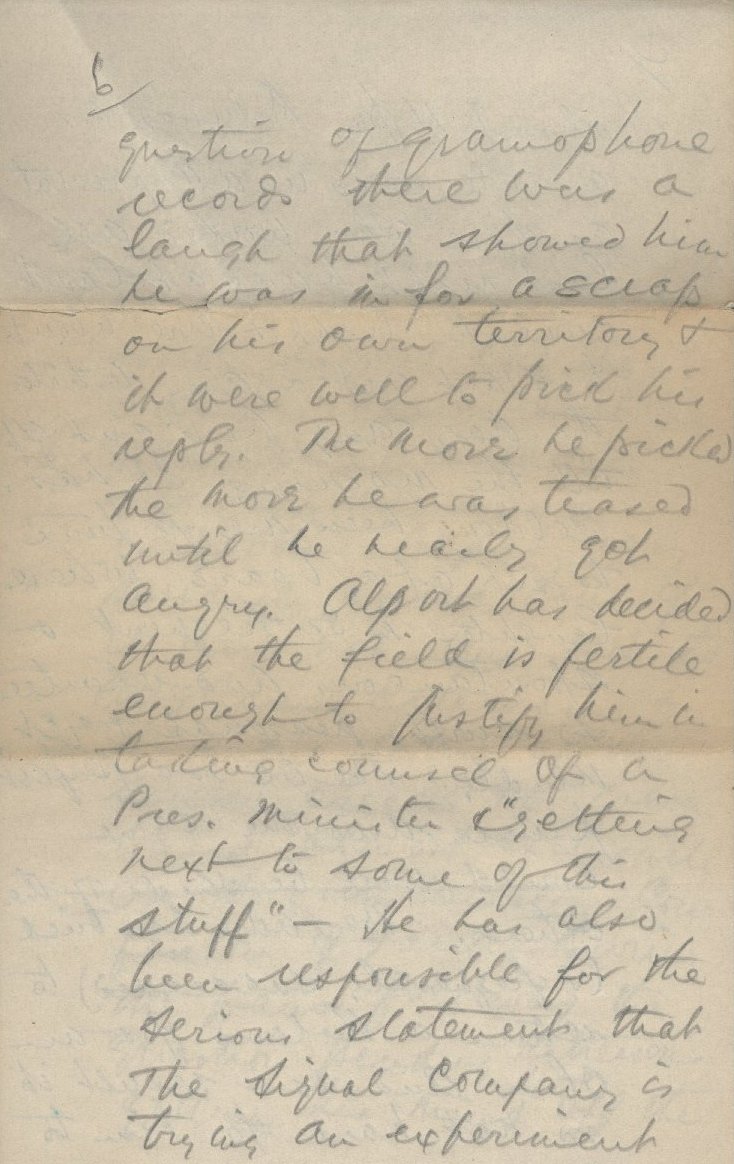 6/
question of gramophone
records there was a
laugh that showed him
he was in for a scrap
on his own territory &
it were well to pick his
reply. The more he picked
the more he was teased
until he nearly got
angry. Alport has decided
that the field is fertile
enough to justify him in
taking counsel of a
Pres. Minister & "getting
next to some of this
stuff" — He has also
been responsible for the
serious statement that
the Signal Company is
trying an experiment